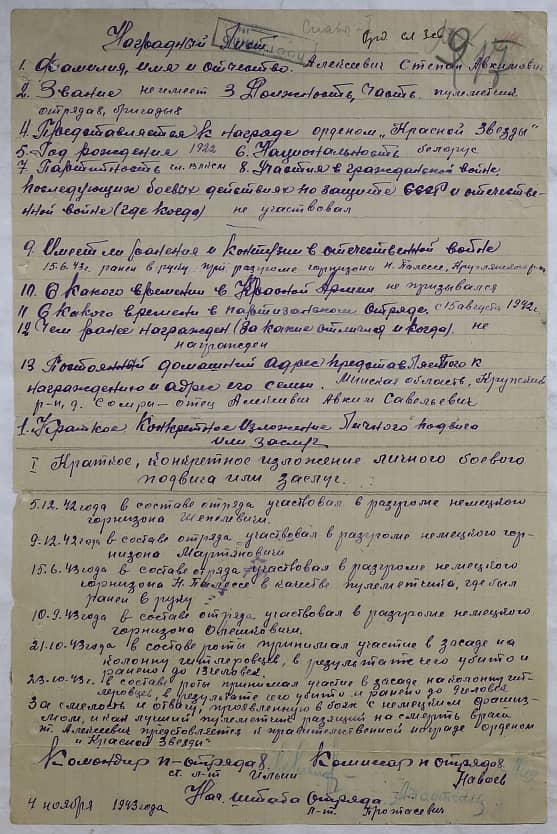 Наградной Лист.
1. Фамилия, имя и отчество. Алексеевич Степан Авкимович
2. Звание не имеет 3 Должность, часть. пулеметчик
отряда 8, бригады 8
4. Представляется к награде орденом „Красной Звезды"
5. Год рождения 1922 6. Национальность белорус
7 Партийность чл. ВЛКСМ 8. Участия в гражданской войне,
последующих боевых действиях по защите СССР и отечестве-
нной войне (где когда) не участвовал
9. Имеет ли ранения и контузии в отечественной войне
15.6.43г. ранен в руку при разгроме горнизона Н. Палессе,
10. С какого времени в Красной Армии не призывался
11 С какого времени в партизанском отряде. с 15 августа 1942г.
12 Чем ранее награжден (за какие отличия и когда). не
награжден
13 Постоянный домашний адрес представляемого к
награждению и адрес его семьи. Минская область, Крупский
р-н, д. отец Авким Савельевич
1. Краткое Конкретное изложение Личного подвига
или заслуг
I Краткое, конкретное изложение личного боевого
подвига или заслуг.
5.12.42 года в составе отряда участвовал в разгроме немецкого
горнизона
9.12.42 года в составе отряда участвовал в разгроме немецкого гор-
низона Мартяновичи
15.6.43 года в составе отряда участвовал в разгроме немецкого
горнизона Н. Палессе в качестве пулеметчика, где был
ранен в руку
10.9.43 года в составе отряда участвовал в разгроме немецкого
горнизона
21.10.43 года в составе роты принимал участие в засаде на
колонну гитлеровцев, в результате чего убито и
ранено до 13 человек.
23.10.43 г. в составе роты принимал участие в засаде на колонну гит-
леровцев, в результате чего убито и ранено до
За смелость и отвагу, проявленную в боях с немецким фашиз-
мом, и как лучший пулеметчик разящий на смерть врага
т. Алексеевич представляется к правительственной награде - орденом
„Красной Звезды"
Командир п-отряда 8. Комиссар п отряда 8
ст. л-т Ильин
Нач. штаба отряда
л-т. Протасевич
4 ноября 1943 года